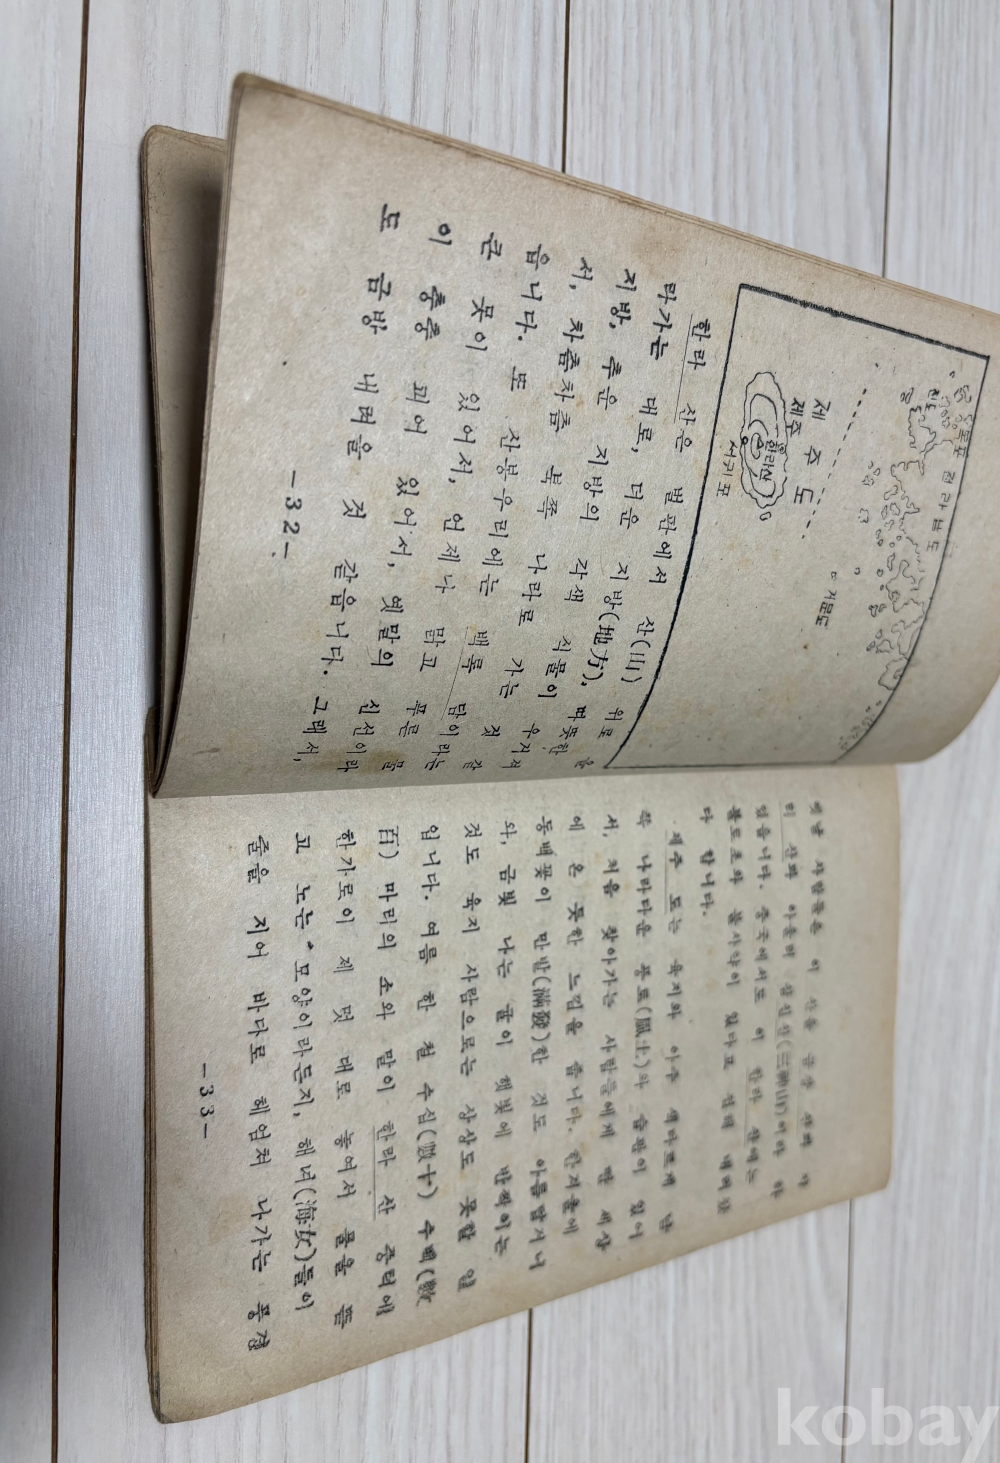 전라남도
목포
진도
거문도
제주도
제주
한라산
서귀포
한라 산은 벌판에서 산(山) 위로 올
라가는 대로, 더운 지방(地方), 따뜻한
지방, 추운 지방의 각색 식물이 우거져
서, 차츰차츰 북쪽 나라로 가는 것 같
읍니다. 또 산봉우리에는 백록 담이라는
큰 못이 있어서, 언제나 맑고 푸른 물
이 충충 괴어 있어서, 옛말의 신선이라
도 금방 내려올 것 같읍니다. 그래서,
-32-
옛날 사람들은 이 산을 금강 산과 지
리 산과 아울러 삼신산(三神山)이라 하
였읍니다. 중국에서도 이 한라 산에는
불로초와 불사약이 있다고 전해 내려왔
다 합니다.
제주 도는 육지와 아주 색다르게 남
쪽 나라다운 풍토(風土)와 습관이 있어
서, 처음 찾아가는 사람들에게 딴 세상
에 온 듯한 느낌을 줍니다. 한겨울에
동백꽃이 만발(滿發)한 것도 아름답거니
와, 금빛 나는 귤이 햇빛에 반짝이는
것도 육지 사람으로는 상상도 못할 일
입니다. 여름 한 철 수십(數十) 수백(數
百) 마리의 소와 말이 한라 산 중턱에
한가로이 제 멋 대로 놓여서 풀을 뜯
고 노는 모양이라든지, 해녀(海女)들이
줄을 지어 바다로 헤엄쳐 나가는 풍경
-33-
kobay